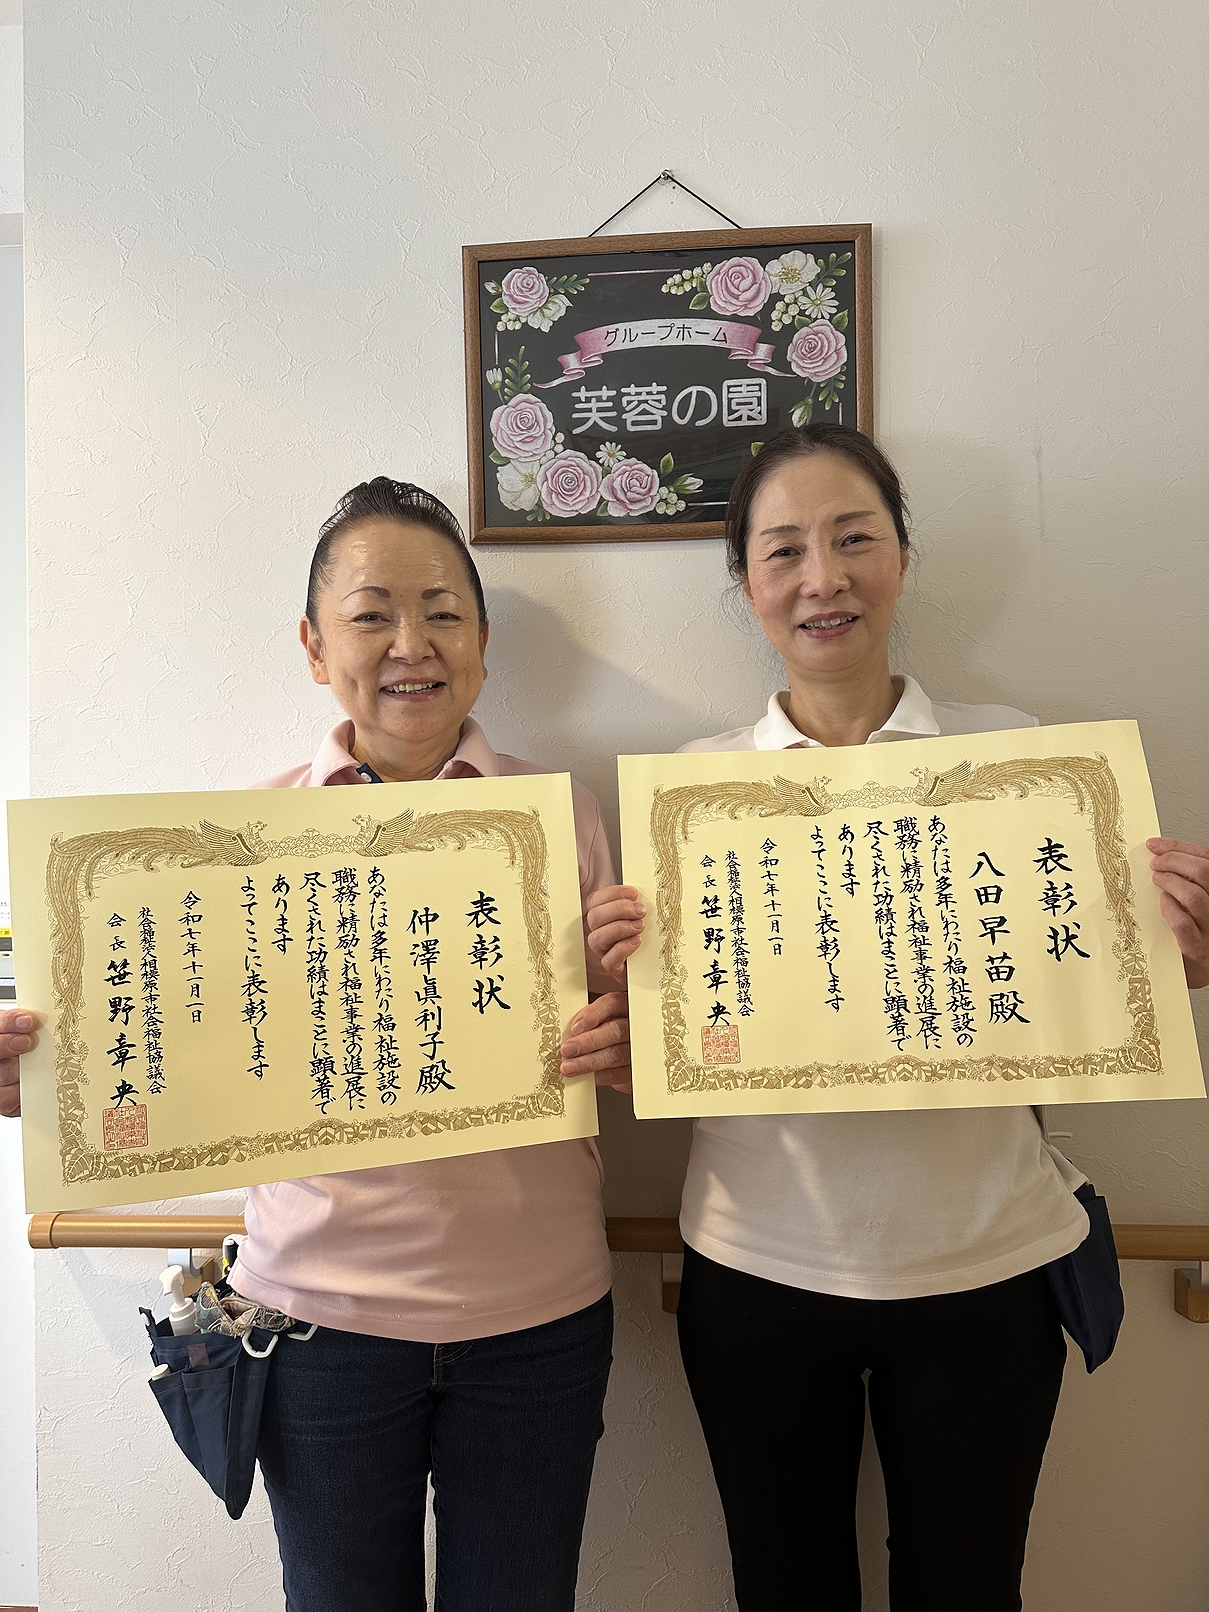 グループホーム
芙蓉の園
表彰状
仲澤眞利子殿
あなたは多年にわたり福祉施設の
職務に精励され福祉事業の進展に
尽くされた功績はまことに顕著で
あります
よってここに表彰します
令和七年十一月一日
社会福祉法人相模原市社会福祉協議会
会長 笹野章央
表彰状
八田早苗殿
あなたは多年にわたり福祉施設の
職務に精励され福祉事業の進展に
尽くされた功績はまことに顕著で
あります
よってここに表彰します
令和七年十一月一日
社会福祉法人相模原市社会福祉協議会
会長 笹野章央